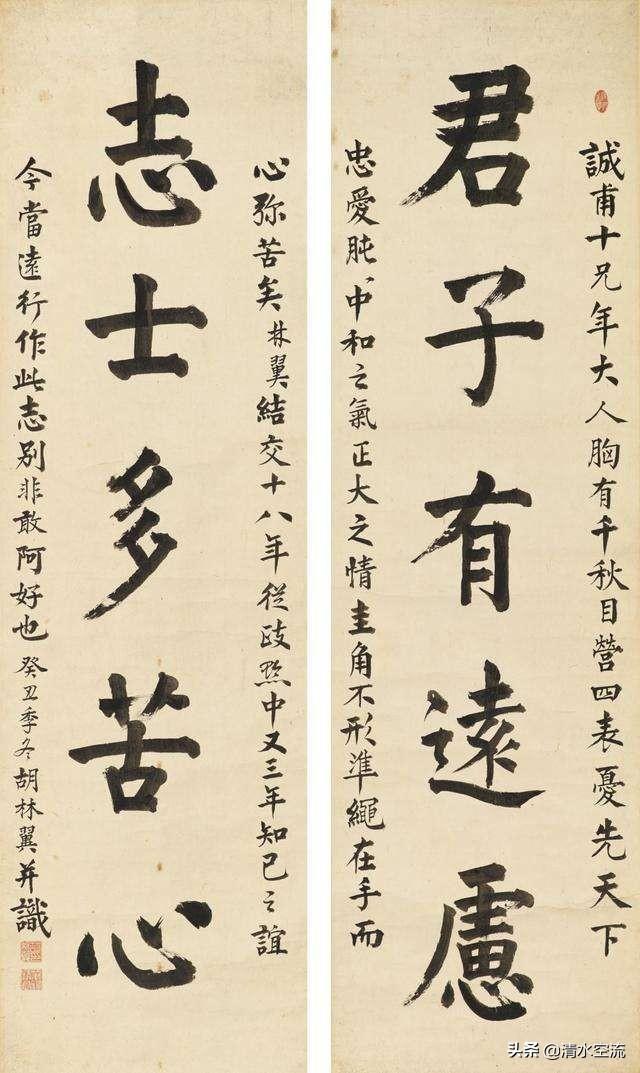 誠甫十兄年大人胸有千秋目營四表憂先天下
君子有遠慮
忠愛肫〻中和之氣正大之情圭角不形準繩在手而
心弥苦矣林翼結交十八年從政黔中又三年知己之誼
志士多苦心
今當遠行作此志別非敢阿好也癸丑季冬胡林翼并識
头条 @清水空流